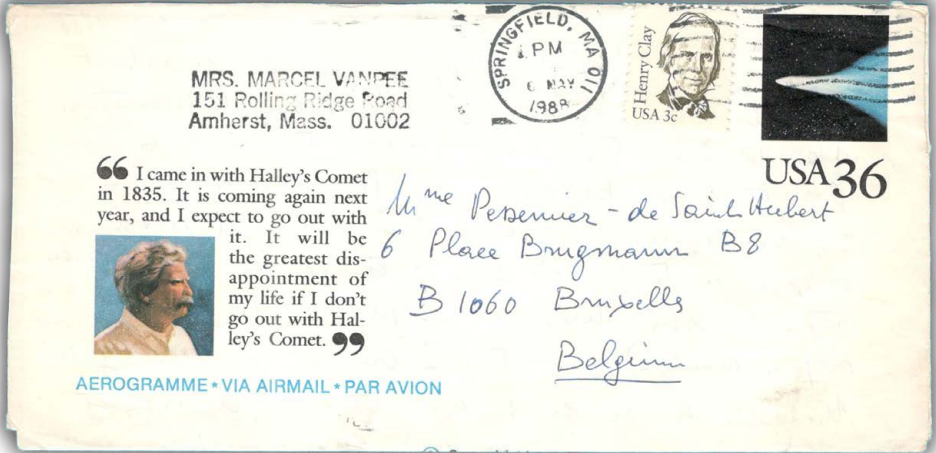 MRS. MARCEL VANPEE
151 Rolling Ridge Road
Amherst, Mass. 01002
SPRINGFIELD, MA 011
PM
6 MAY
1988
Henry Clay
USA 3c
USA 36
“ I came in with Halley's Comet
in 1835. It is coming again next
year, and I expect to go out with
it. It will be
the greatest dis-
appointment of
my life if I don't
go out with Hal-
ley's Comet. ”
AEROGRAMME ★ VIA AIRMAIL ★ PAR AVION
Mme - de Saint Hubert
6 Place Brugmann B8
B 1060 Bruxelles
Belgium